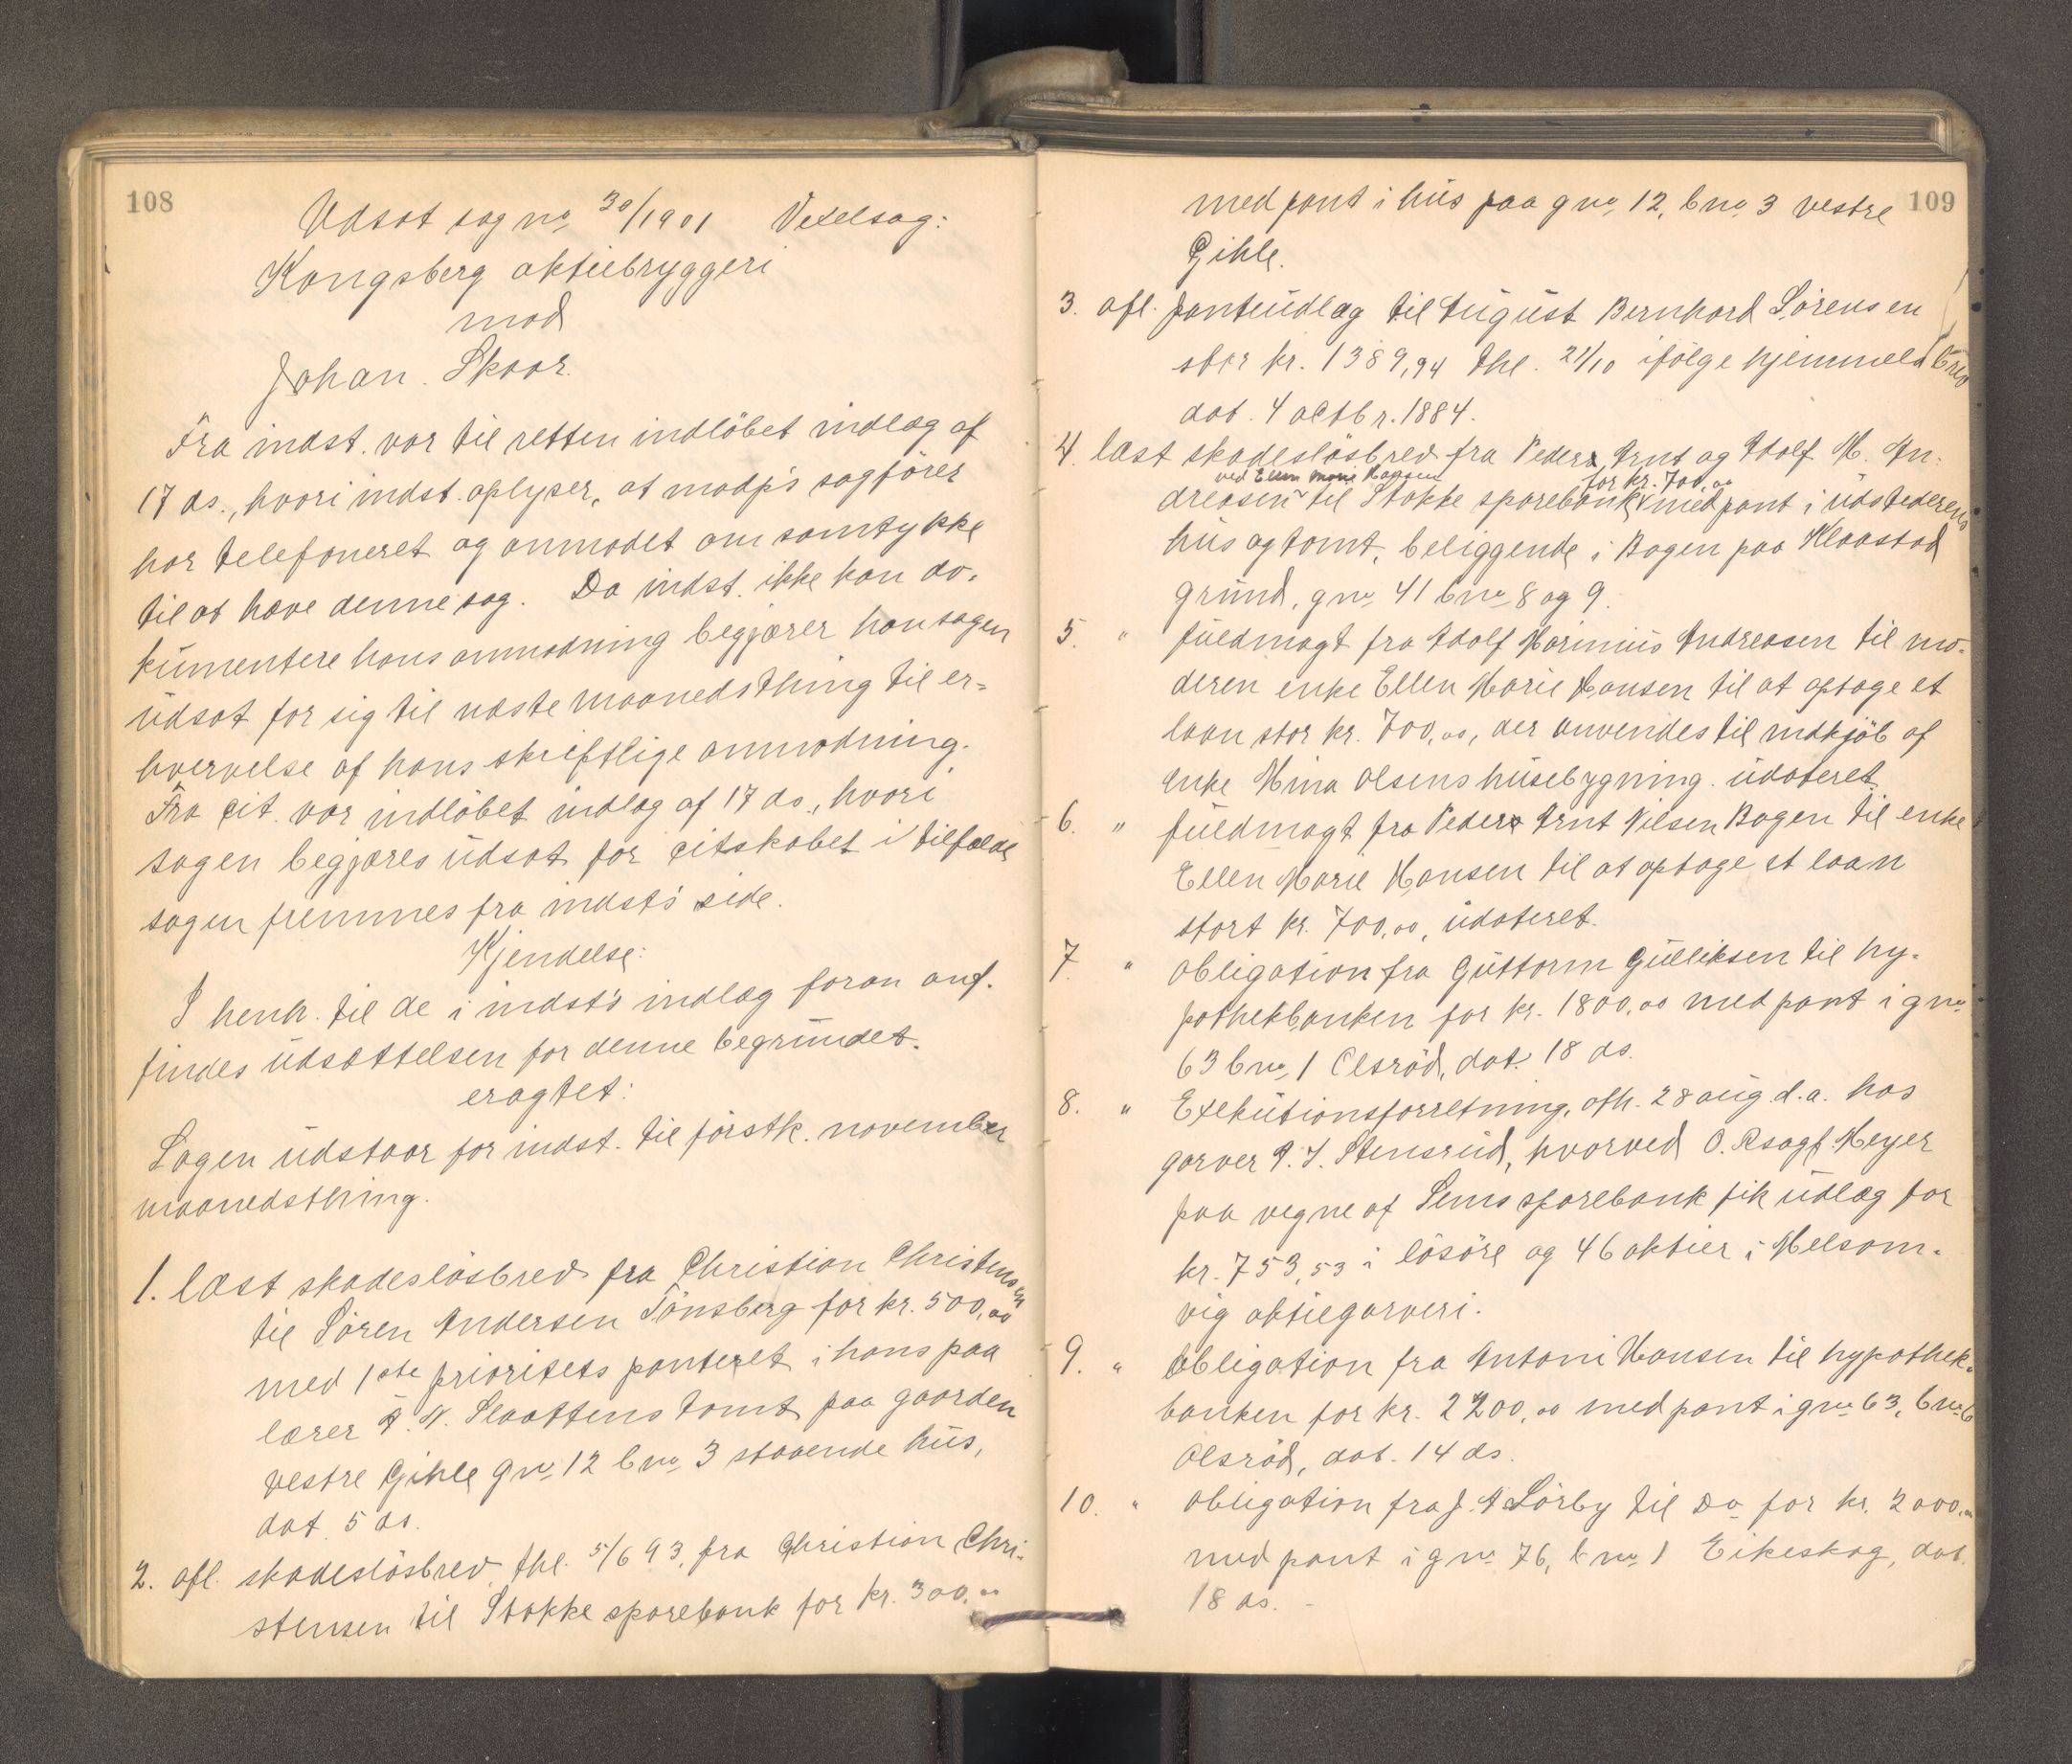 108
Udsat sag no 30/1901 Vexelsag:
Kongsberg aktiebryggeri
mod
Johan Skaar.
Fra indst. var til retten indløbet indlæg af
17 ds., hvori indst. oplyser, at modp's sagfører
har telefoneret og anmodet om samtykke
til at hæve denne sag. Da indst. ikke kan do-
kumentere hans anmodning begjærer han sagen
udsat for sig til næste maanedsthing til er-
hvervelse af hans skriftlige anmodning.
Fra cit. var indløbet indlæg af 17 ds., hvori
sagen begjæres udsat for citskabet i tilfælde
sagen fremmes fra indst's side.
Kjendelse:
I henh. til de i indst's indlæg foran anf.
findes udsættelsen for denne begrundet.
eragtet:
Sagen udstaar for indst. til førstk. november
maanedsthing.
1. læst skadesløsbrev fra Christian Christensen
til Sören Andersen Tönsberg for kr. 500,00
med 1ste prioritets panteret i hans paa
lærer A. N. Slaattens tomt paa gaarden
vestre Gihle gno 12 bno 3 staaende hus,
dat. 5 ds.
2. afl. skadesløsbrev thl. 5/6 93, fra Christian Chri-
stensen til Stokke sparebank for kr. 300,00
109
med pant i hus paa gno 12, bno 3 vestre
Gihle.
3. afl. panteudlæg til August Bernhard Sørensen
stor kr. 1389,94 thl. 21/10 ifølge hjemmelsbrev
dat. 4 octbr. 1884.
4. læst skadesløsbrev fra Peder Arnt og Adolf M. An-
ved Ellen Marie Hansen for kr. 700,00
dreasen til Stokke sparebank med pant i udstederens
hus og tomt, beliggende i Bogen paa Klaastad
grund, gno 41 bno 8 og 9.
5. " fuldmagt fra Adolf Marinius Andreasen til mo-
deren enke Ellen Marie Hansen til at optage et
laan stor kr. 700,00, der anvendes til indkjøb af
enke Mina Olsens husebygning. udateret.
6. " fuldmagt fra Peder Arnt Nilsen Bogen til enke
Ellen Marie Hansen til at optage et laan
stort kr. 700,00, udateret.
7. " obligation fra Guttorm Gulliksen til hy-
pothekbanken for kr. 1800,00 med pant i gno
63 bno 1 Olsröd, dat. 18 ds.
8. " Exekutionsforretning, afh. 28 aug. d.a. hos
garver P. J. Stensrud, hvorved O. Rsagf. Meyer
paa vegne af Sems sparebank fik udlæg for
kr. 753,53 i løsøre og 46 aktier i Melsom-
vig aktiegarveri.
9. " obligation fra Antoni Hansen til hypothek-
banken for kr. 2200,00 med pant i gno 63, bno 6
Olsröd, dat. 14 ds.
10. " obligation fra J. A. Sörby til Do for kr. 2000,00
med pant i gno 76, bno 1 Eikeskog, dat.
18 ds.